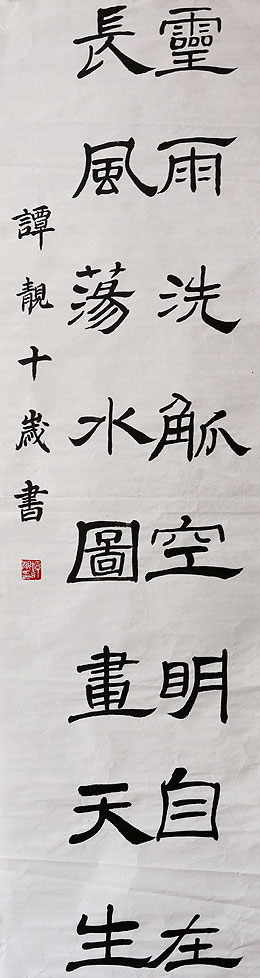 靈雨洗觚空明自在
長風蕩水圖畫天生
譚靚十歲書